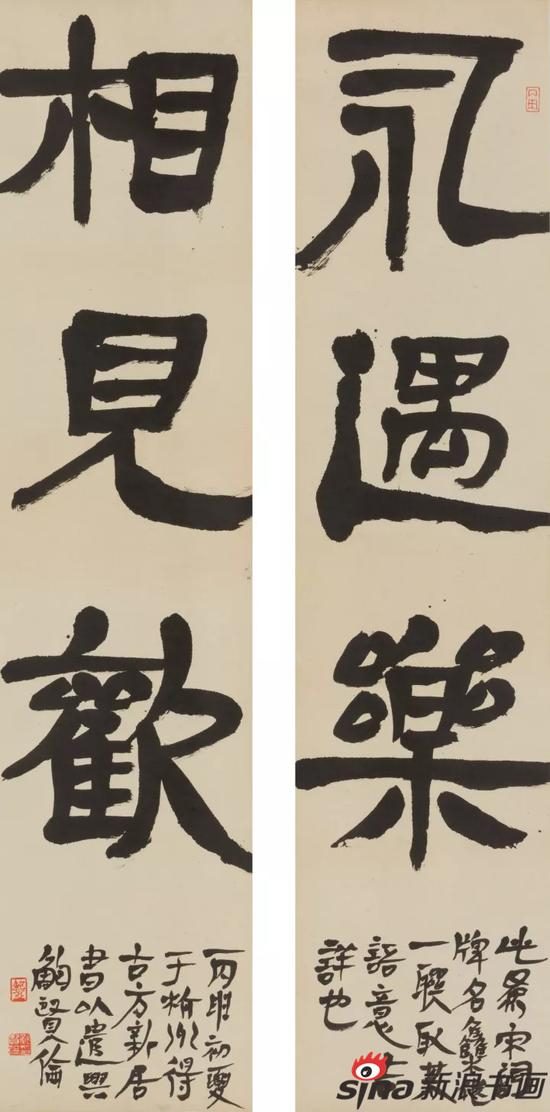 永遇樂
此宋詞
牌名
一聯取
語意吉
詳也
相見歡
丙申初夏
于州得
古方新居
書以遣興
鮑賢倫
sina 新浪书画